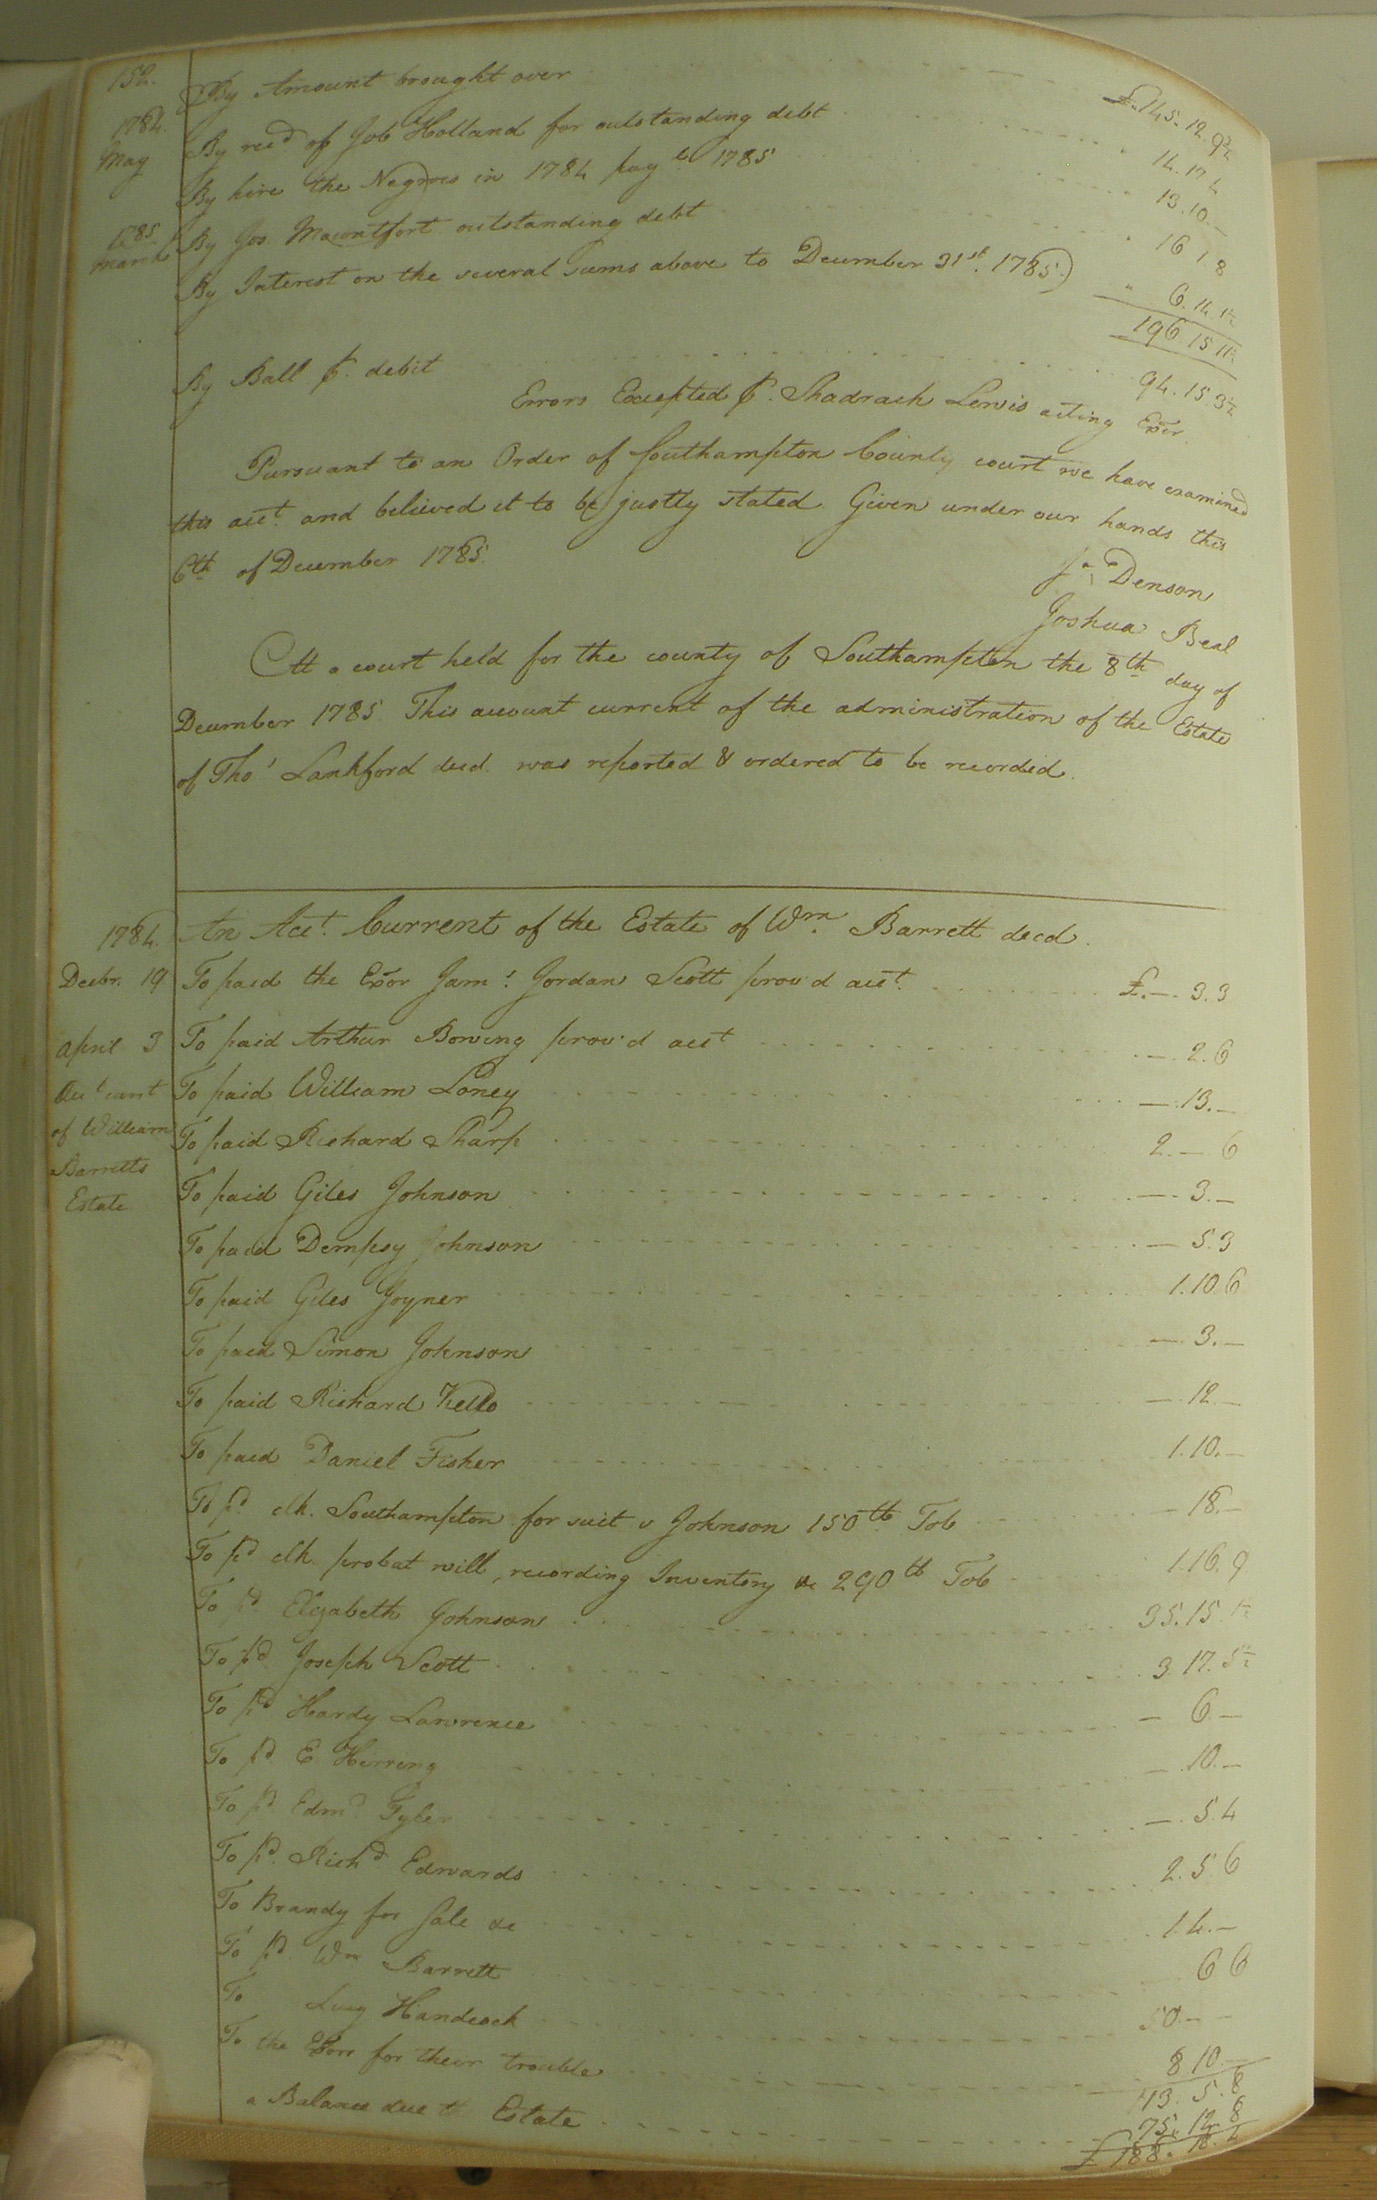 152.
By Amount brought over £.145.12.9½
1784. May By recd of Job Holland for outstanding debt 14.17.4
By hire the Negroes in 1784 pay be 1785 13.10.-
1785 March By Jos. Mountfort outstanding debt 16.1.8
By Interest on the several sums above to December 31st. 1785) 6.14.1½
196.15.11½
By Ball p. debit 94.15.3½
Errors Excepted p. Shadrach Lewis acting Exor.
Pursuant to an Order of Southampton County court we have examined
this acct. and believed it to be justly stated. Given under our hands this
6th of December 1785.
Jo. Denson
Joshua Beal
At a court held for the county of Southampton the 8th day of
December 1785. This account current of the administration of the Estate
of Thos Lankford decd. was reported & ordered to be recorded.
1784. An Acct. Current of the Estate of Wm. Barrett decd.
Decbr. 19 To paid the Exor Jams. Jordan Scott prov'd acct. £.-.3.3
April 3 To paid Arthur Bowing prov'd acct -.2.6
Acct curnt of William Barretts Estate
To paid William Loney -.13.-
To paid Richard Sharp 2.-.6
To paid Giles Johnson -.3.-
To paid Dempsy Johnson -.5.3
To paid Giles Joyner 1.10.6
To paid Simon Johnson -.3.-
To paid Richard Kello -.12.-
To paid Daniel Fisher 1.10.-
To pd. clk. Southampton for suit v Johnson 150 lb Tob -.18.-
To pd clk. probat will, recording Inventory &c 290 lb Tob 1.16.9
To pd Elizabeth Johnson 35.15.½
To pd Joseph Scott 3.17.5½
To pd Hardy Lawrence -.6.-
To pd. E Herring -.10.-
To pd Edmd Tyler -.5.4
To pd. Richd Edwards 2.5.6
To Brandy for Sale &c 1.4.-
To pd Wm Barrett 6 6
To Lucy Handcock 50.-.-
To the Exors for their trouble 8 10.-
113. 5.8
a Balance due the Estate 75.12.8
£188.18.4